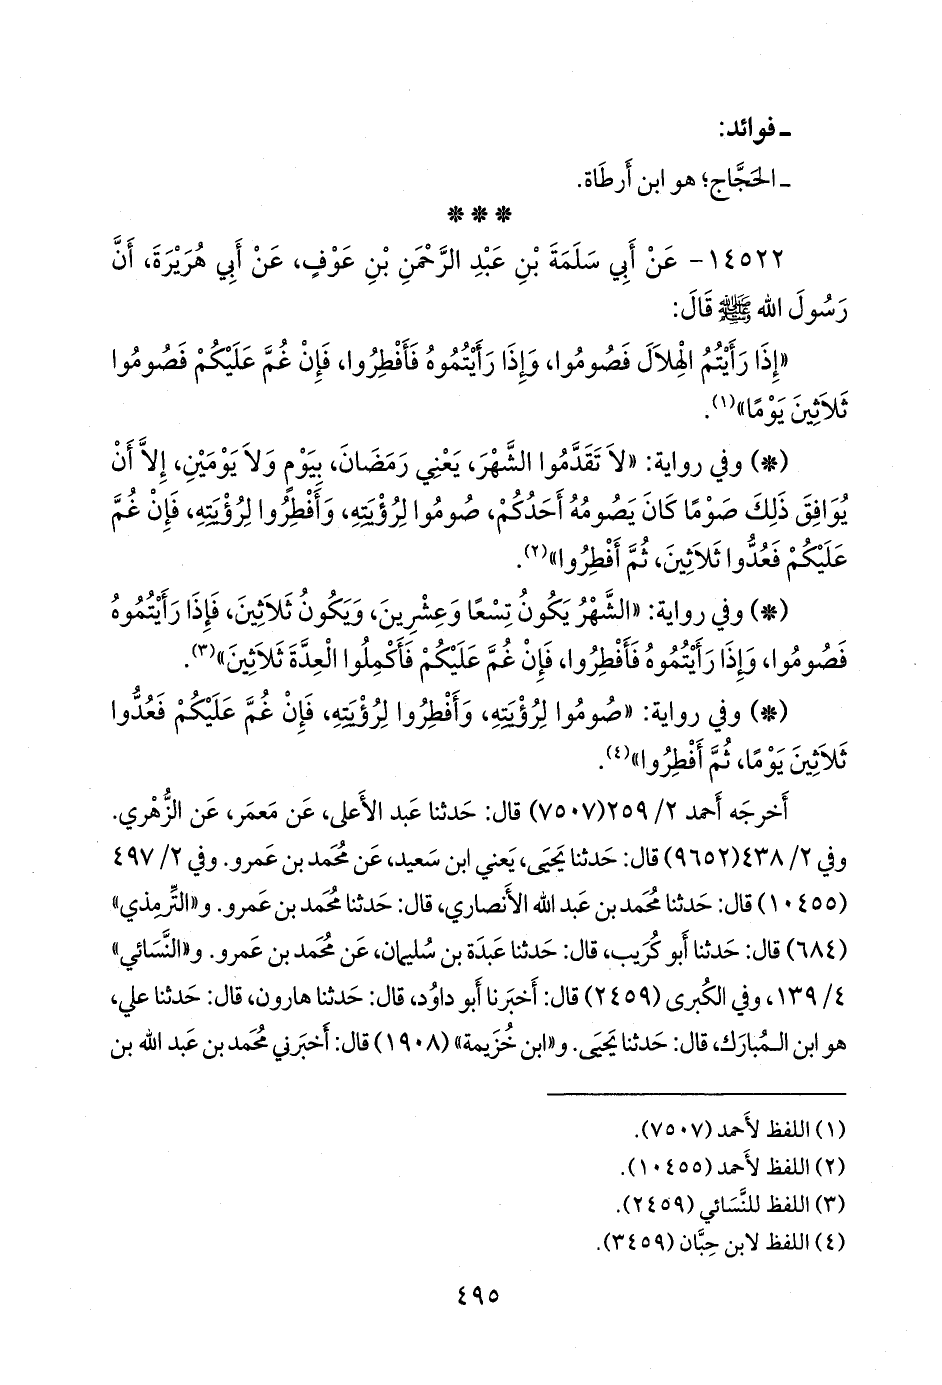 ـ فوائد:
ـ الحَجَّاج؛ هو ابن أَرطَاة.
* * *
١٤٥٢٢- عَنْ أَبِي سَلَمَةَ بْنِ عَبْدِ الرَّحْمَنِ بْنِ عَوْفٍ، عَنْ أَبِي هُرَيْرَةَ، أَنَّ
رَسُولَ الله ﷺ قَالَ:
«إِذَا رَأَيْتُمُ الْهِلاَلَ فَصُومُوا، وَإِذَا رَأَيْتُمُوهُ فَأَفْطِرُوا، فَإِنْ غُمَّ عَلَيْكُمْ فَصُومُوا
ثَلاَثِينَ يَوْمًا»(١).
(*) وفي رواية: «لاَ تَقَدَّمُوا الشَّهْرَ، يَعْنِي رَمَضَانَ، بِيَوْمٍ وَلاَ يَوْمَيْنِ، إِلاَّ أَنْ
يُوَافِقَ ذَلِكَ صَوْمًا كَانَ يَصُومُهُ أَحَدُكُمْ، صُومُوا لِرُؤْيَتِهِ، وَأَفْطِرُوا لِرُؤْيَتِهِ، فَإِنْ غُمَّ
عَلَيْكُمْ فَعُدُّوا ثَلاَثِينَ، ثُمَّ أَفْطِرُوا»(٢).
(*) وفي رواية: «الشَّهْرُ يَكُونُ تِسْعًا وَعِشْرِينَ، وَيَكُونُ ثَلاَثِينَ، فَإِذَا رَأَيْتُمُوهُ
فَصُومُوا، وَإِذَا رَأَيْتُمُوهُ فَأَفْطِرُوا، فَإِنْ غُمَّ عَلَيْكُمْ فَأَكْمِلُوا الْعِدَّةَ ثَلاَثِينَ»(٣).
(*) وفي رواية: «صُومُوا لِرُؤْيَتِهِ، وَأَفْطِرُوا لِرُؤْيَتِهِ، فَإِنْ غُمَّ عَلَيْكُمْ فَعُدُّوا
ثَلاَثِينَ يَوْمًا، ثُمَّ أَفْطِرُوا»(٤).
أَخرجَه أَحمد ٢/ ٢٥٩(٧٥٠٧) قال: حَدثنا عَبد الأَعلى، عَن مَعمَر، عَن الزُّهْري.
وفي ٢/ ٤٣٨(٩٦٥٢) قال: حَدثنا يَحيَى، يَعني ابن سَعيد، عَن مُحمد بن عَمرو. وفي ٢/ ٤٩٧
(١٠٤٥٥) قال: حَدثنا مُحمد بن عَبد الله الأَنصاري، قال: حَدثنا مُحمد بن عَمرو. و«التِّرمِذي»
(٦٨٤) قال: حَدثنا أَبو كُرَيب، قال: حَدثنا عَبدَة بن سُليمان، عَن مُحمد بن عَمرو. و«النَّسائي»
٤/ ١٣٩، وفي الكُبرى (٢٤٥٩) قال: أَخبَرنا أَبو داوُد، قال: حَدثنا هارون، قال: حَدثنا علي،
هو ابن الـمُبارَك، قال: حَدثنا يَحيَى. و«ابن خُزيمة» (١٩٠٨) قال: أَخبَرني مُحمد بن عَبد الله بن
(١) اللفظ لأَحمد (٧٥٠٧).
(٢) اللفظ لأَحمد (١٠٤٥٥).
(٣) اللفظ للنَّسَائي (٢٤٥٩).
(٤) اللفظ لابن حِبَّان (٣٤٥٩).
٤٩٥